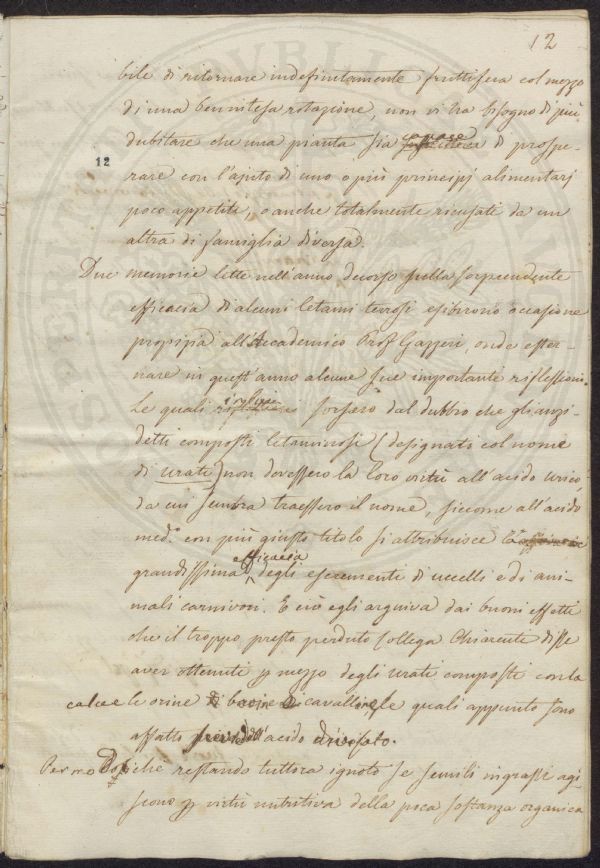 12
bile di ritornare indefinitamente fruttifera col mezzo
di una ben intesa rotazione, non vi ha bisogno di più
dubitare che una pianta sia capace di prospe-
12
rare con l'ajuto di uno o più principj alimentarj
poco appetiti, o anche totalmente ricusati da un
altra di famiglia diversa.
Due memorie lette nell'anno decorso sulla sorprendente
efficacia di alcuni letami terrosi esibirono occasione
propizia all'Accademico Prof Gazzeri, onde ester-
nare in quest'anno alcune sue importante riflessioni.
Le quali sorsero dal dubbio che gli anzi-
detti composti letaminosi (designati col nome
di urati) non dovessero la loro virtù all'acido urico,
da cui sembra traessero il nome, siccome all'acido
med.º con più giusto titolo si attribuisce la
grandissima efficacia degli escrementi di uccelli e di ani-
mali carnivori. E ciò egli arguiva dai buoni effetti
che il troppo presto perduto Collega Chiarenti disse
aver ottenuti p mezzo degli urati composti con la
calce e le orine cavalline, le quali appunto sono
affatto dell'acido
Per modo che restando tuttora ignoto se simili ingrassi agi-
scono p virtù nutritiva della poca sostanza organica